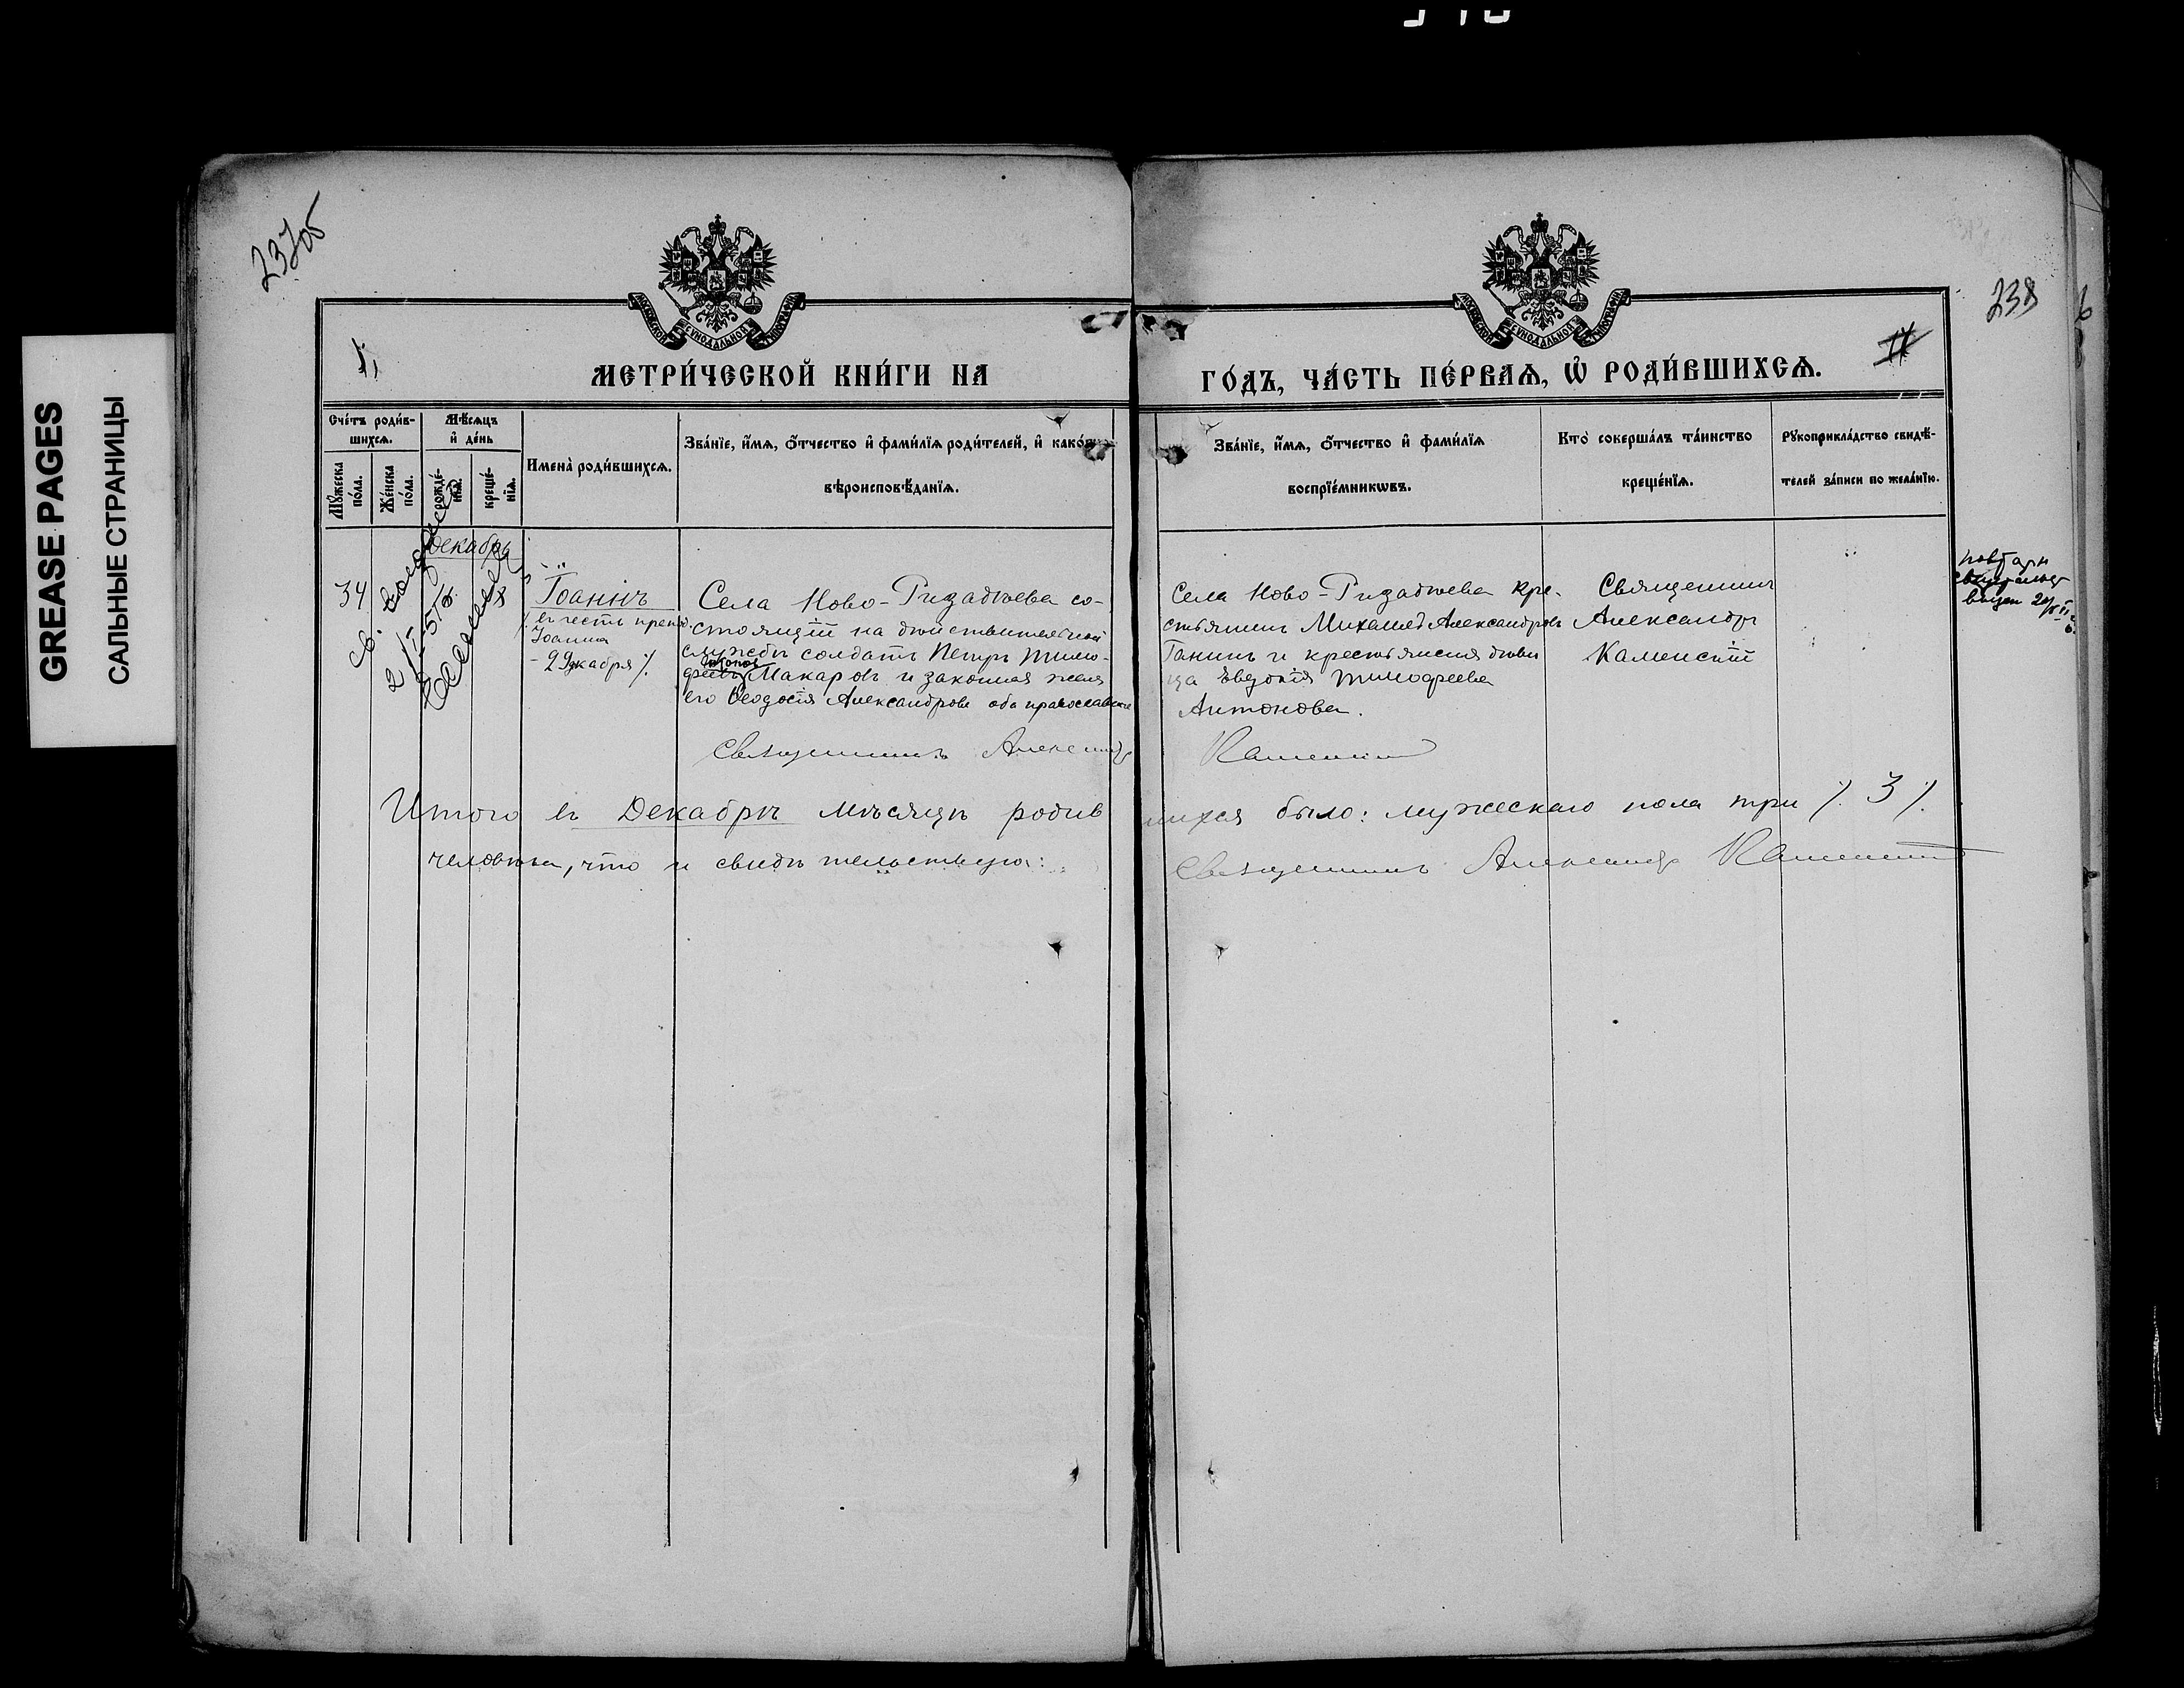 GREASE PAGES
САЛЬНЫЕ СТРАНИЦЫ
237об
238
МЕТРИ́ЧЕСКОЙ КНИ́ГИ НА
ГО́ДЪ, ЧА́СТЬ ПЕ́РВАѦ, Ѽ РОДИ́ВШИХСѦ.
Сче́тъ роди́в-
шихсѧ.
Мꙋ́жеска по́ла.
Же́нска по́ла.
Мѣ́сѧцъ
и҆ де́нь
рожде́-
нїѧ.
креще́-
нїѧ.
И҆мена̀ роди́вшихсѧ.
Зва́нїе, и҆́мѧ, ѻ҆́тчество и҆ фами́лїѧ роди́телей, и҆ како́гѡ
вѣроисповѣ́данїѧ.
Зва́нїе, и҆́мѧ, ѻ҆́тчество и҆ фами́лїѧ
воспрїе́мникѡвъ.
Кто̀ соверша́лъ та́инство
креще́нїѧ.
Рꙋкоприкла́дство свидѣ́-
телей за́писи по жела́нїю.
Декабрь
34
Іоаннъ
въ честь препод.
Іоанна
- 29 декабря ·/.
Села Ново-Ризадѣева со-
стоящій на дѣйствительной
службѣ солдатъ Петръ Тимо-
фѣевъ Макаровъ и законная жена
его Ѳеодосія Александрова оба православные
Села Ново-Ризадѣева кре-
стьянинъ Михаилъ Александровъ
Ганинъ и крестьянская дѣви
ца Евдокія Тимофеева
Антонова.
Священникъ
Александръ
Каменскій
Священникъ Александръ
Каменскій
Итого въ Декабрѣ мѣсяцѣ родив
шихся было: мужескаго пола три /. 3 /.
человѣка, что и свидѣтельствую:
Священникъ Александръ Каменскій